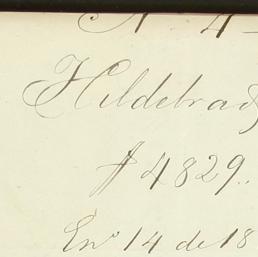 N. 4
Hildebrad
$4829.
En° 14 de 18